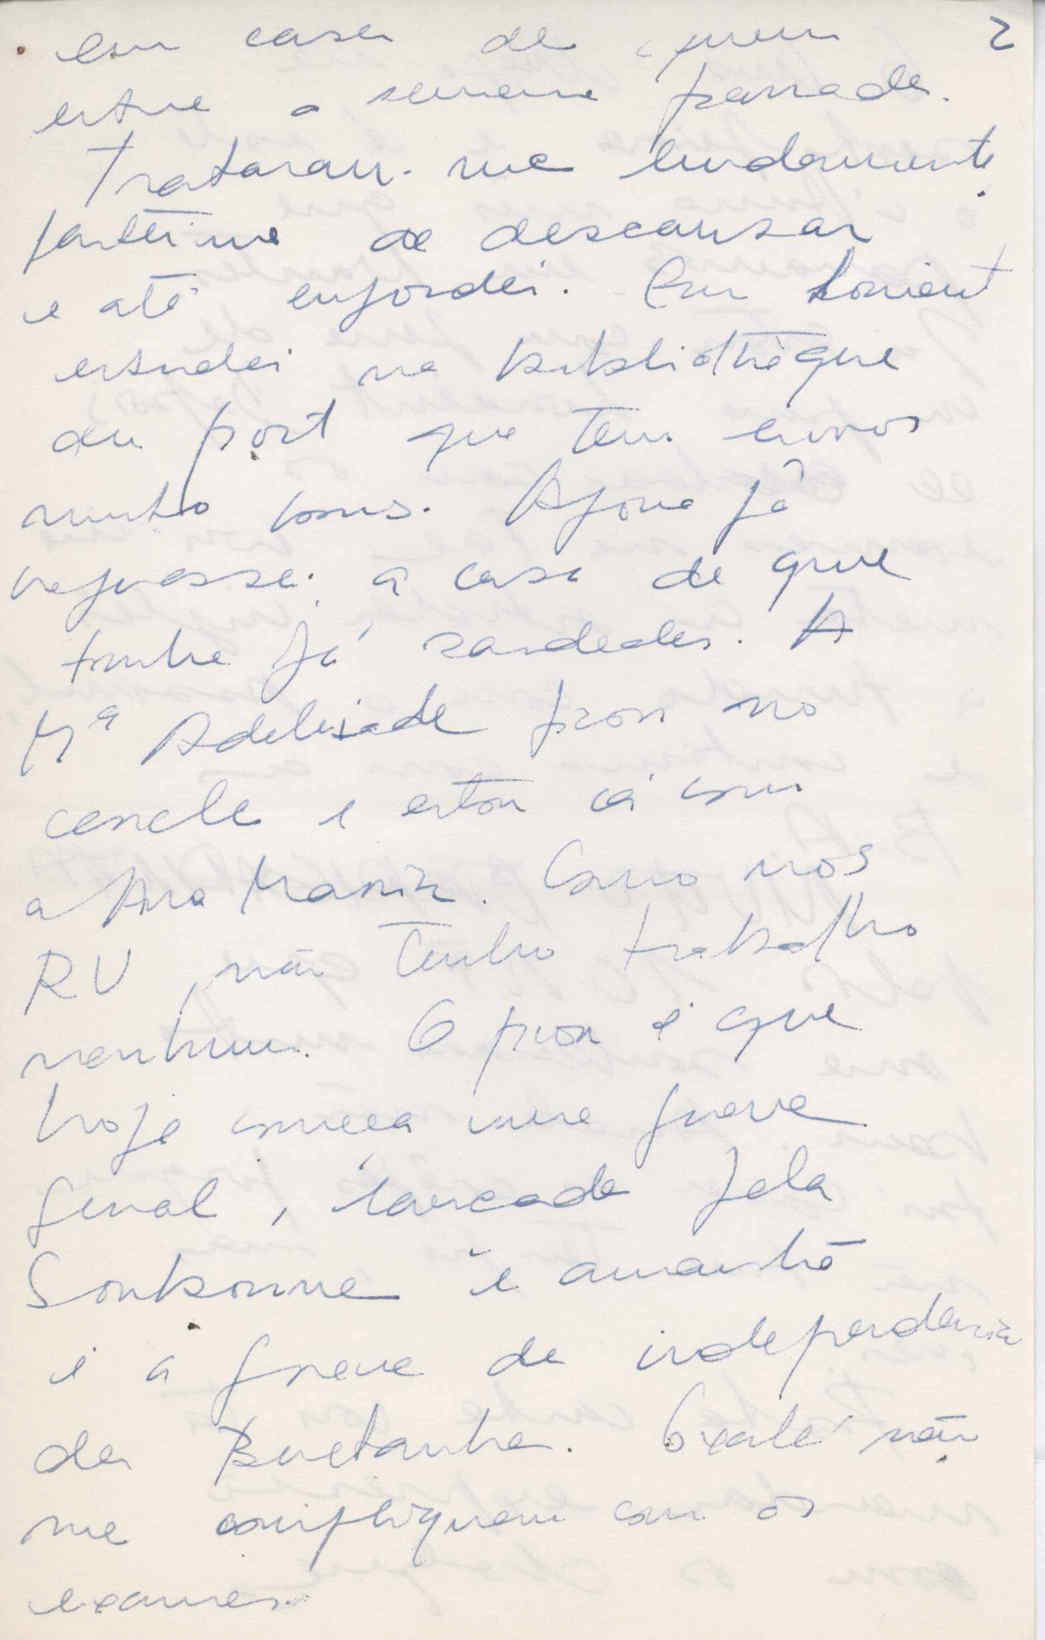 em casa de quem 2
estive a semana passada.
Trataram-me lindamente
fartei-me de descansar
e até engordei. Em Lorient
estudei na bibliothèque
du port que tem livros
muito bons. Agora já
regressei a casa de que
tinha já saudades. A
Mª Adelaide foi no
e estou cá com
a Ana Maria. Como nos
RU, não tenho trabalho
nenhum. O pior é que
hoje começa uma greve
geral, lançada pela
Sorbonne e amanhã
é a greve de independência
da Bretanha. Oxalá não
me compliquem com os
exames.